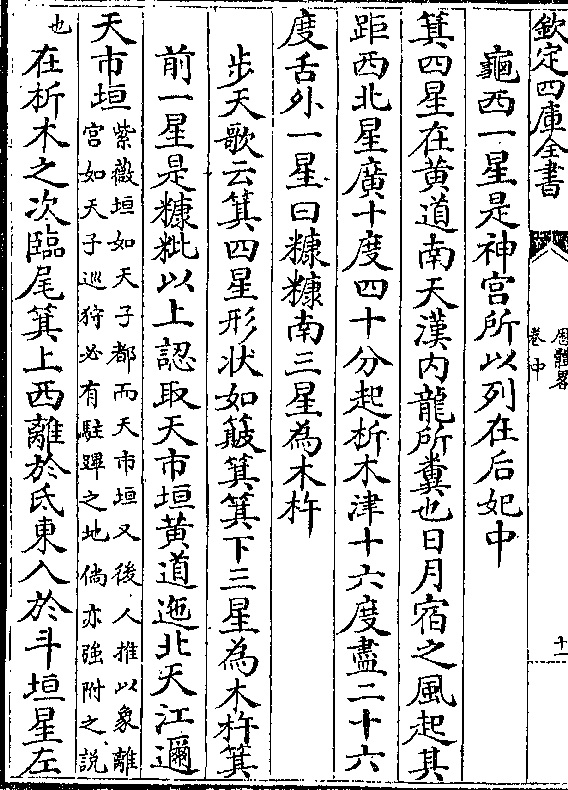 欽定四庫全書
厯體畧
卷中
十一
龜西一星是神宫所以列在后妃中
箕四星在黄道南天漢内龍所糞也日月宿之風起其
距西北星廣十度四十分起析木津十六度盡二十六
度舌外一星曰糠糠南三星為木杵
步天歌云箕四星形状如簸箕箕下三星為木杵箕
前一星是糠粃以上認取天市垣黄道迤北天江邇
天市垣紫薇垣如天子都而天市垣又後人推以象離
宫如天子巡狩必有駐蹕之地倘亦強附之説
也在析木之次臨尾箕上西離於氐東入於斗垣星左